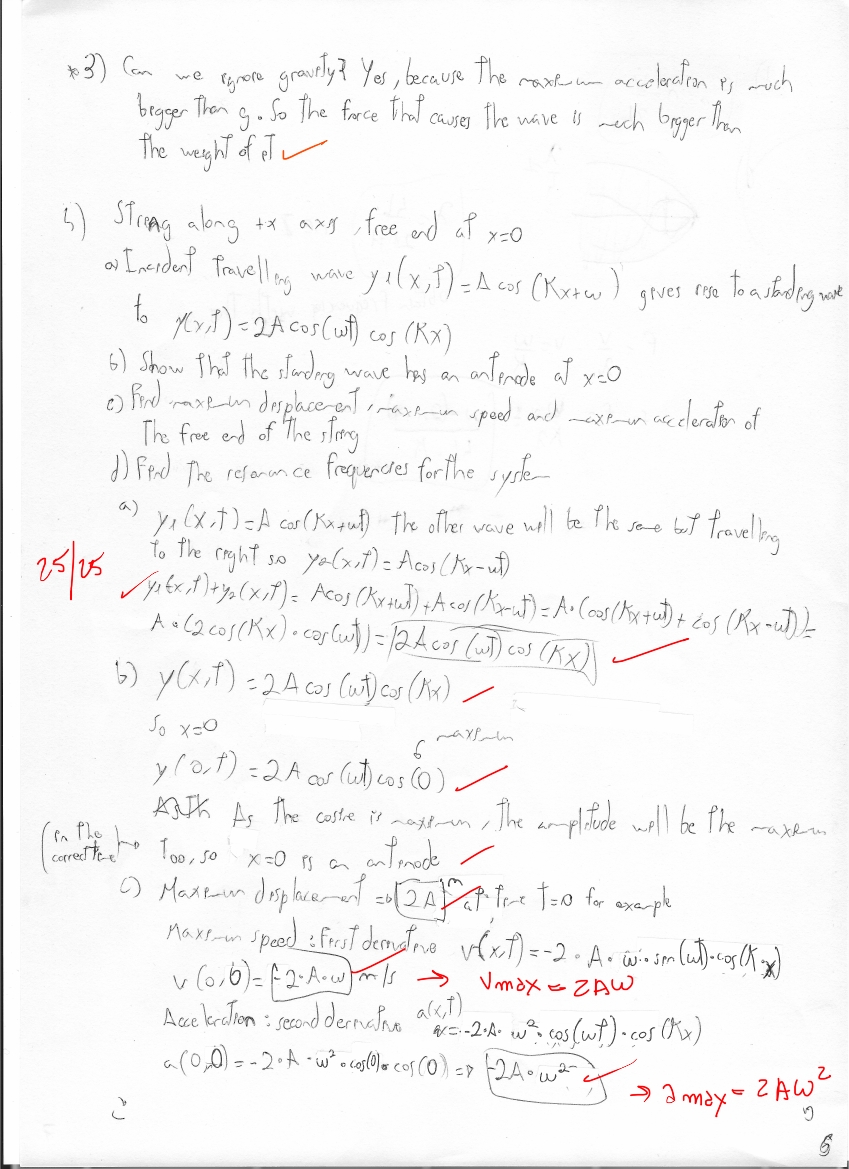 *3) Can we ignore gravity? Yes, because the maximum acceleration is much
bigger than g. So the force that causes the wave is much bigger than
the weight of it ✓
5) String along +x axis, free end at x=0
a) Incident travelling wave y₁(x,t)=A cos(Kx+ω ) gives rise to a standing wave
to y(x,t)=2A cos(ωt) cos(Kx)
b) Show that the standing wave has an antinode at x=0
c) Find maximum displacement, maximum speed and maximum acceleration of
The free end of the string
d) Find the resonance frequencies for the system
a) y₁(x,t)=A cos(Kx+ωt) the other wave will be the same but travelling
to the right so y₂(x,t)=A cos(Kx-ωt)
25/25
✓ y₁(x,t)+y₂(x,t)= A cos(Kx+ωt)+A cos(Kx-ωt)=A·(cos(Kx+ωt)+cos(Kx-ωt))=
A·(2cos(Kx)·cos(ωt))=2A cos(ωt) cos(Kx) ✓
b) y(x,t)=2A cos(ωt) cos(Kx) ✓
So x=0
maximum
y(0,t)=2A cos(ωt) cos(0) ✓
As the cosine is maximum, the amplitude will be the maximum
(in the
correct time)
Too, so x=0 is an antinode ✓
c) Maximum displacement = 2A m ✓ at time t=0 for example
Maximum speed: First derivative v(x,t)=-2·A·ω·sin(ωt)·cos(K·x)
v(0,0)=-2·A·ω m/s ✓ → Vmax = 2Aω
Acceleration: second derivative a(x,t)
=-2·A·ω²·cos(ωt)·cos(Kx)
a(0,0)=-2·A·ω²·cos(0)·cos(0) ⇒ -2A·ω² ✓
→ amax = 2Aω²